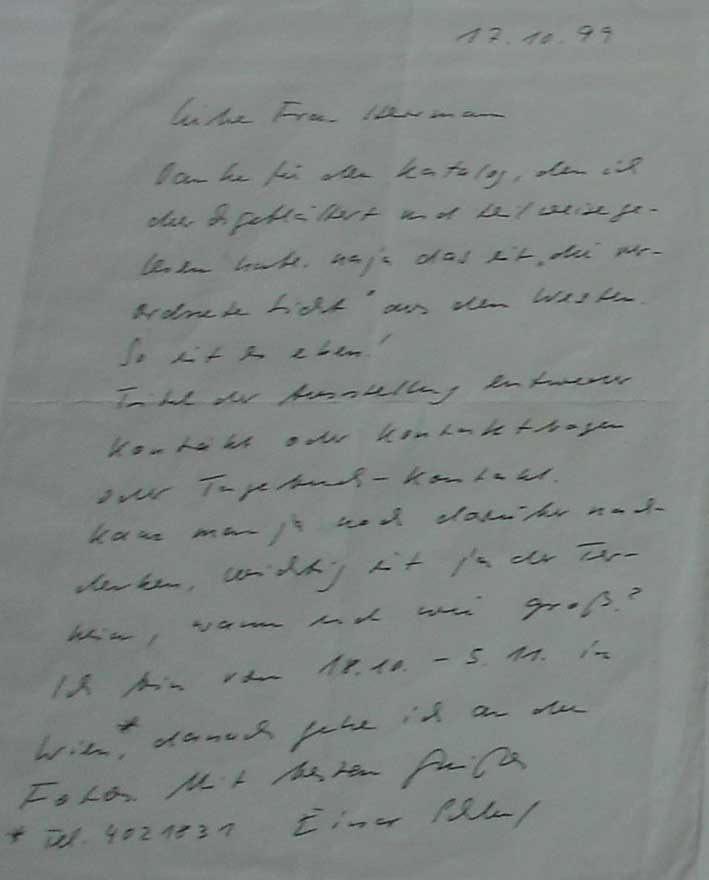 17.10.99
Liebe Frau Herrmann
Danke für den Katalog, den ich
durchgeblättert und teilweise ge-
lesen habe. naja das ist „die ver-
ordnete Sicht" aus dem Westen.
So ist es eben!
Titel der Ausstellung entweder
Kontakt oder Kontaktbogen
oder Tagebuch-Kontakt.
kann man ja noch darüber nach-
denken, wichtig ist ja der Ter-
min, wann und wie groß?
Ich bin vom 18.10. - 5.11. in
Wien,* danach gehe ich an die
Fotos. Mit besten Grüßen
* Tel. 4021831 Einar Schleef